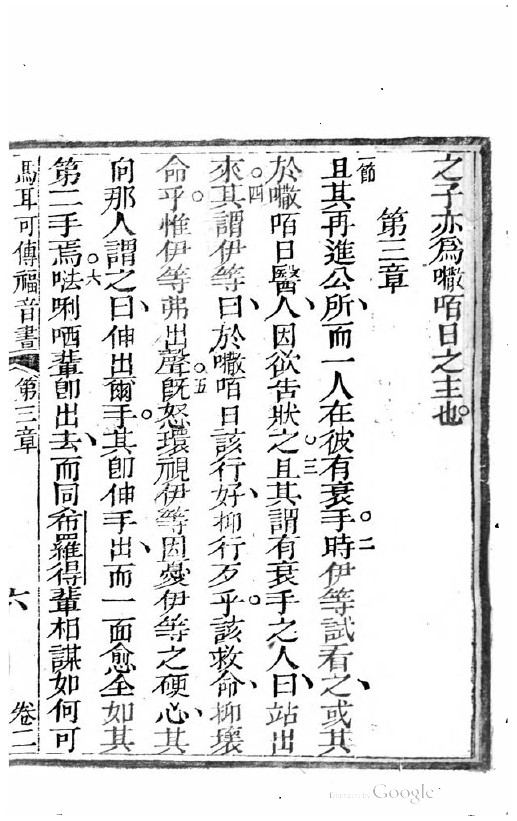 之子亦爲𡂡咟日之主也。
第三章
一節且其再進公所、而一人在彼有衰手。二時伊等試看之、或其
於𡂡咟日醫人、因欲告狀之。三且其謂有衰手之人曰、站出
來。四其謂伊等曰、於𡂡咟日該行好、抑行歹乎。該救命、抑壞
命乎。惟伊等弗出聲。五旣怒環視伊等因憂伊等之硬心、其
向那人謂之曰、伸出爾手。其卽伸手出、而一面愈全如其
第二手焉。六𠵽唎哂輩卽出去、而同希羅得輩相謀如何可
馬耳可傳福音書 第三章 六 卷二
Digitized by Google